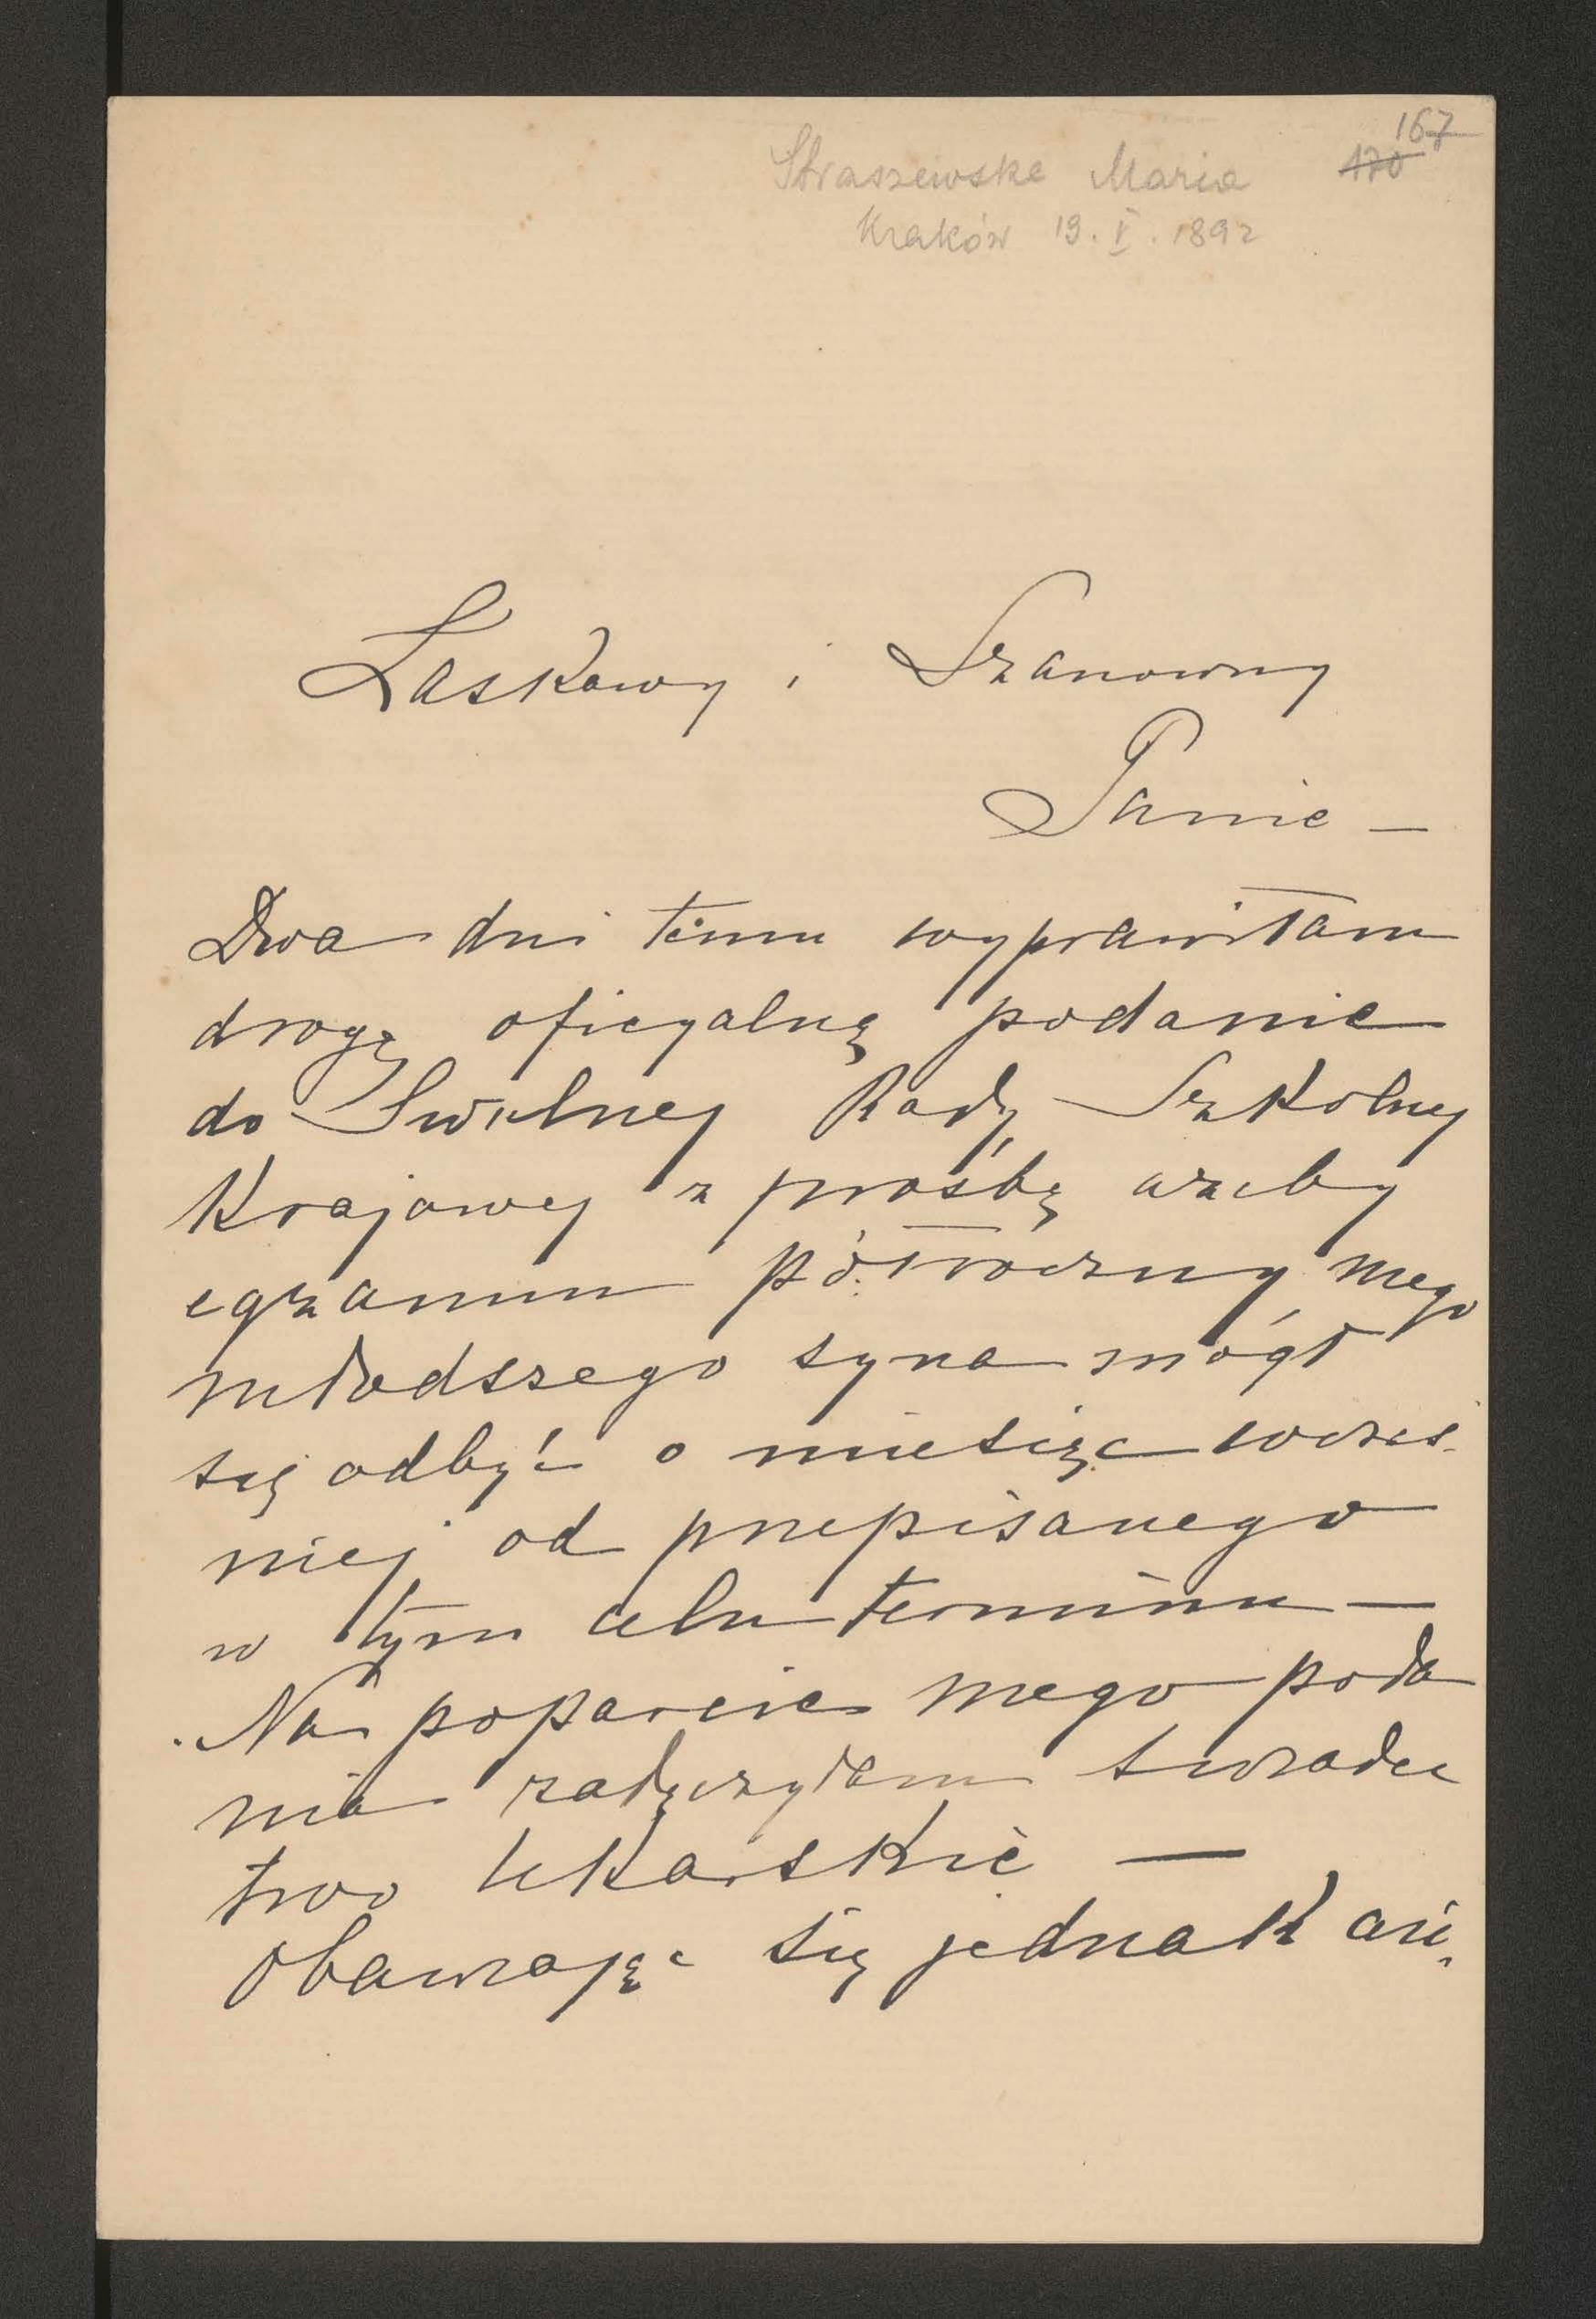 167
170
Straszewska Maria
Kraków 19. V. 1892
Łaskawy i Szanowny
Panie —
Dwa dni temu wyprawiłam
drogą oficyalną podanie
do Świetnej Rady Szkolnej
Krajowej z prośbą azeby
egzamin półroczny mego
młodszego syna mógł
się odbyć o miesiąc wcześ-
niej od przepisanego
w tym celu terminu —
Na poparcie mego poda
nia załączyłam świadec
two lekarskie —
Obawiając się jednak